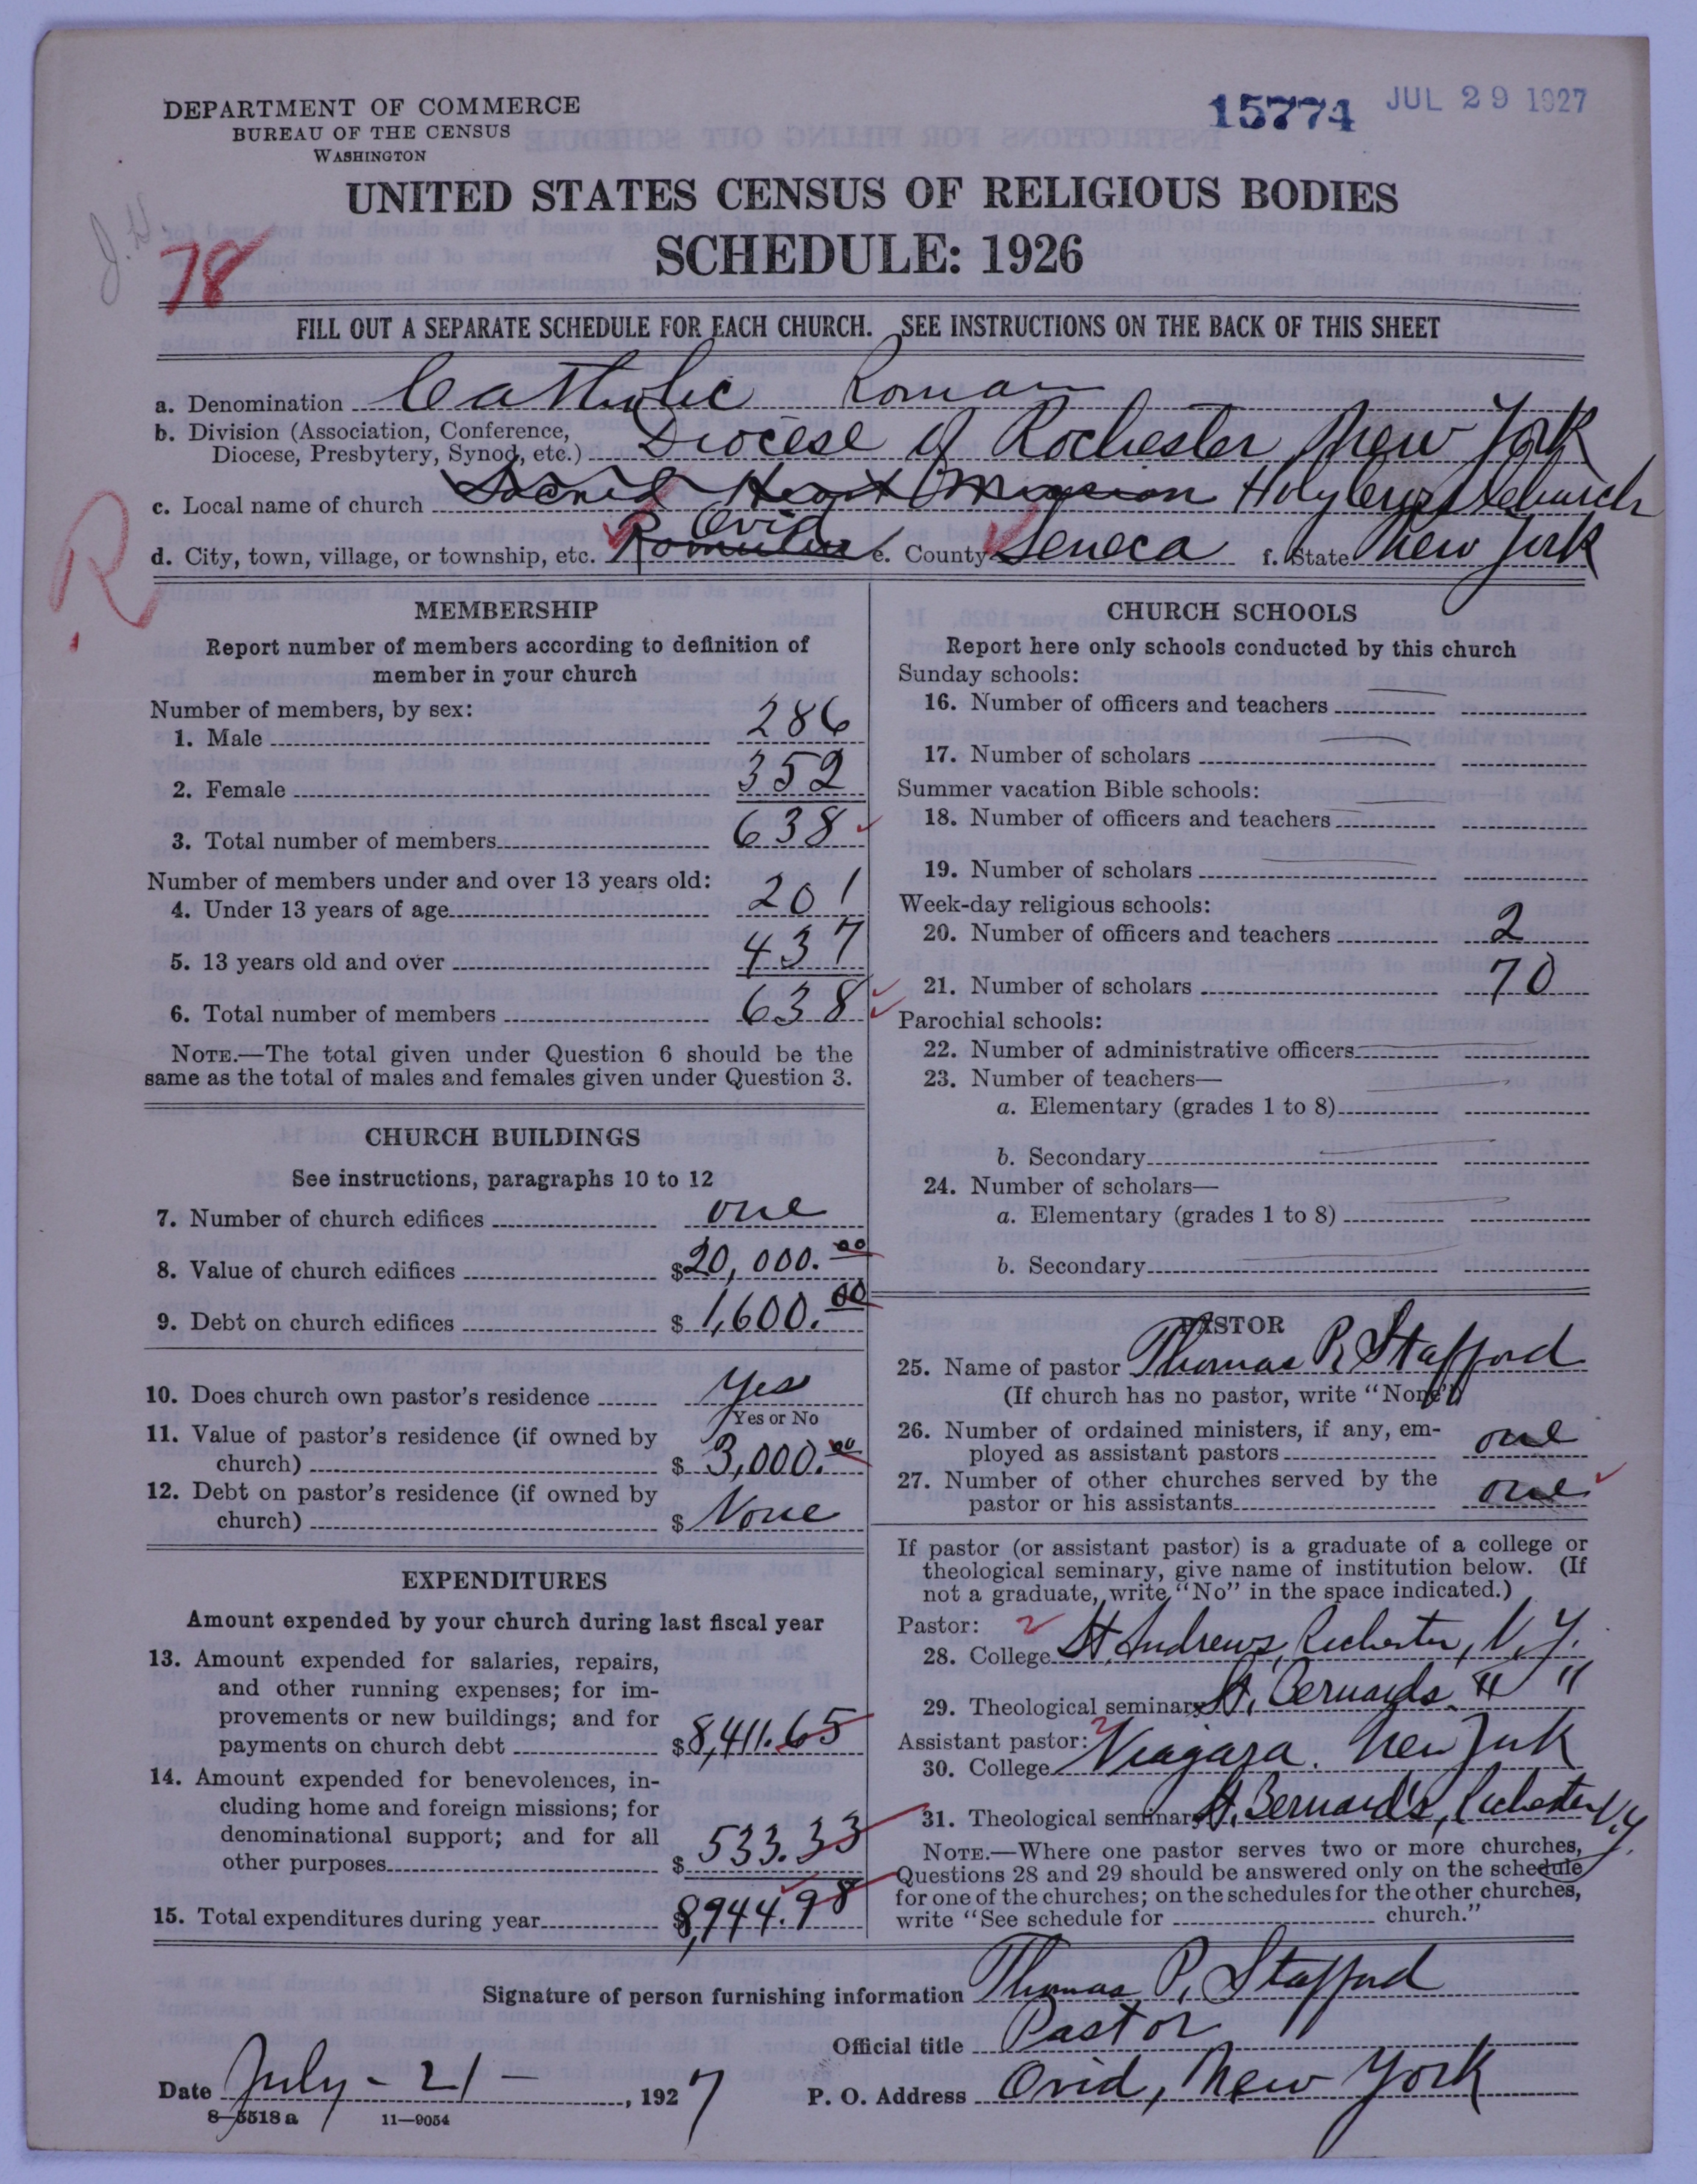 DEPARTMENT OF COMMERCE
BUREAU OF THE CENSUS
WASHINGTON
15774 JUL 29 1927
UNITED STATES CENSUS OF RELIGIOUS BODIES
SCHEDULE: 1926
78
FILL OUT A SEPARATE SCHEDULE FOR EACH CHURCH. SEE INSTRUCTIONS ON THE BACK OF THIS SHEET
a. Denomination Catholic Roman
b. Division (Association, Conference,
Diocese, Presbytery, Synod, etc.) Diocese of Rochester New York
c. Local name of church Sacred Heart Mission Holy Cross Church
Ovid
d. City, town, village, or township, etc. Romulus e. County Seneca f. State New York
R
MEMBERSHIP
Report number of members according to definition of
member in your church
Number of members, by sex:
1. Male 286
2. Female 352
3. Total number of members 638
Number of members under and over 13 years old:
4. Under 13 years of age 201
5. 13 years old and over 437
6. Total number of members 638
NOTE.—The total given under Question 6 should be the
same as the total of males and females given under Question 3.
CHURCH BUILDINGS
See instructions, paragraphs 10 to 12
7. Number of church edifices one
8. Value of church edifices $20,000.00
9. Debt on church edifices $1,600.00
10. Does church own pastor's residence Yes
Yes or No
11. Value of pastor's residence (if owned by
church) $3,000.00
12. Debt on pastor's residence (if owned by
church) $None
EXPENDITURES
Amount expended by your church during last fiscal year
13. Amount expended for salaries, repairs,
and other running expenses; for im-
provements or new buildings; and for
payments on church debt $8,411.65
14. Amount expended for benevolences, in-
cluding home and foreign missions; for
denominational support; and for all
other purposes $533.33
15. Total expenditures during year $8,944.98
CHURCH SCHOOLS
Report here only schools conducted by this church
Sunday schools:
16. Number of officers and teachers
17. Number of scholars
Summer vacation Bible schools:
18. Number of officers and teachers
19. Number of scholars
Week-day religious schools:
20. Number of officers and teachers 2
21. Number of scholars 70
Parochial schools:
22. Number of administrative officers
23. Number of teachers—
a. Elementary (grades 1 to 8)
b. Secondary
24. Number of scholars—
a. Elementary (grades 1 to 8)
b. Secondary
PASTOR
25. Name of pastor Thomas P. Stafford
(If church has no pastor, write "None")
26. Number of ordained ministers, if any, em-
ployed as assistant pastors one
27. Number of other churches served by the
pastor or his assistants one
If pastor (or assistant pastor) is a graduate of a college or
theological seminary, give name of institution below. (If
not a graduate, write "No" in the space indicated.)
Pastor: 2
28. College St. Andrews, Rochester, N.Y.
29. Theological seminary St. Bernards " "
Assistant pastor: 2
30. College Niagara. New York
31. Theological seminary St. Bernard's, Rochester N.Y.
NOTE.—Where one pastor serves two or more churches,
Questions 28 and 29 should be answered only on the schedule
for one of the churches; on the schedules for the other churches,
write "See schedule for church."
Signature of person furnishing information Thomas P. Stafford
Official title Pastor
Date July - 21 - , 1927 P. O. Address Ovid, New York
8—5518 a 11—9054